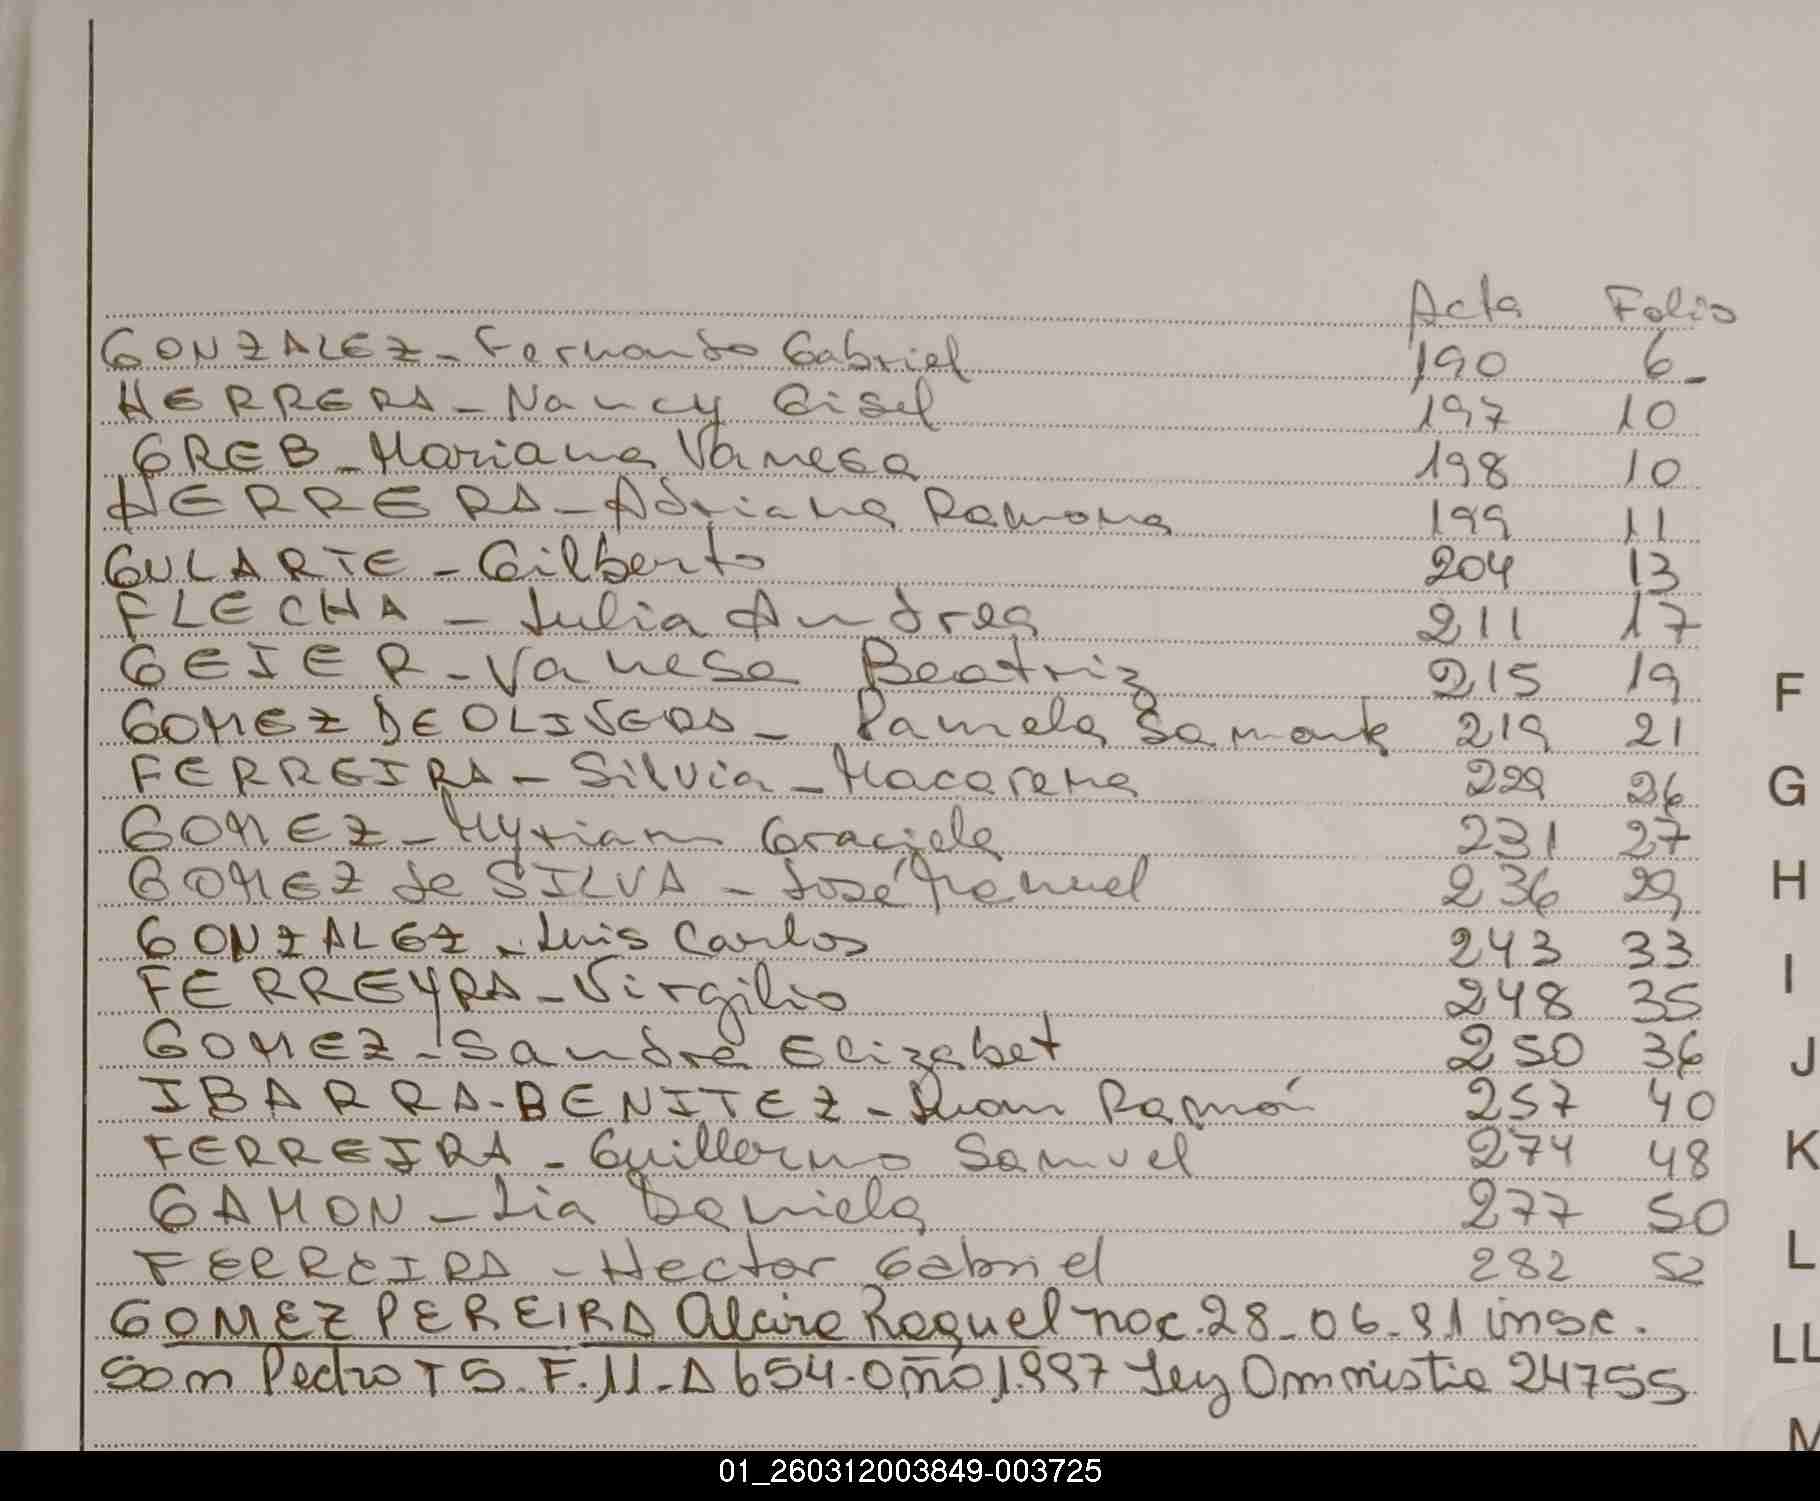 Acta Folio
GONZALEZ - Fernando Gabriel 190 6-
HERRERA - Nancy Gisel 197 10
GREB - Mariana Vanesa 198 10
HERRERA - Adriana Ramona 199 11
GULARTE - Gilberto 204 13
FLECHA - Julia Andrea 211 17
GEIER - Vanesa Beatriz 215 19
GOMEZ DE OLIVERA - Pamela Samanta 219 21
FERREIRA - Silvia - Macarena 229 26
GOMEZ - Myriam Graciela 231 27
GOMEZ de SILVA - José Manuel 236 29
GONZALEZ - Luis Carlos 243 33
FERREYRA - Virgilio 248 35
GOMEZ - Sandra Elizabet 250 36
IBARRA - BENITEZ - Juan Ramón 257 40
FERREIRA - Guillermo Samuel 274 48
GAMON - Lia Daniela 277 50
FERREIRA - Hector Gabriel 282 52
GOMEZ PEREIRA Raquel nac. 28-06-91 insc.
San Pedro T 5. F. 11 - A 654. año 1997 Ley Omnistia 24755
F
G
H
I
J
K
L
LL
M
01_260312003849-003725